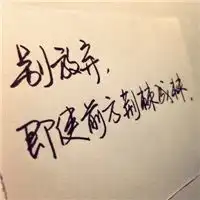 别放弃，
即使前方荆棘成林。